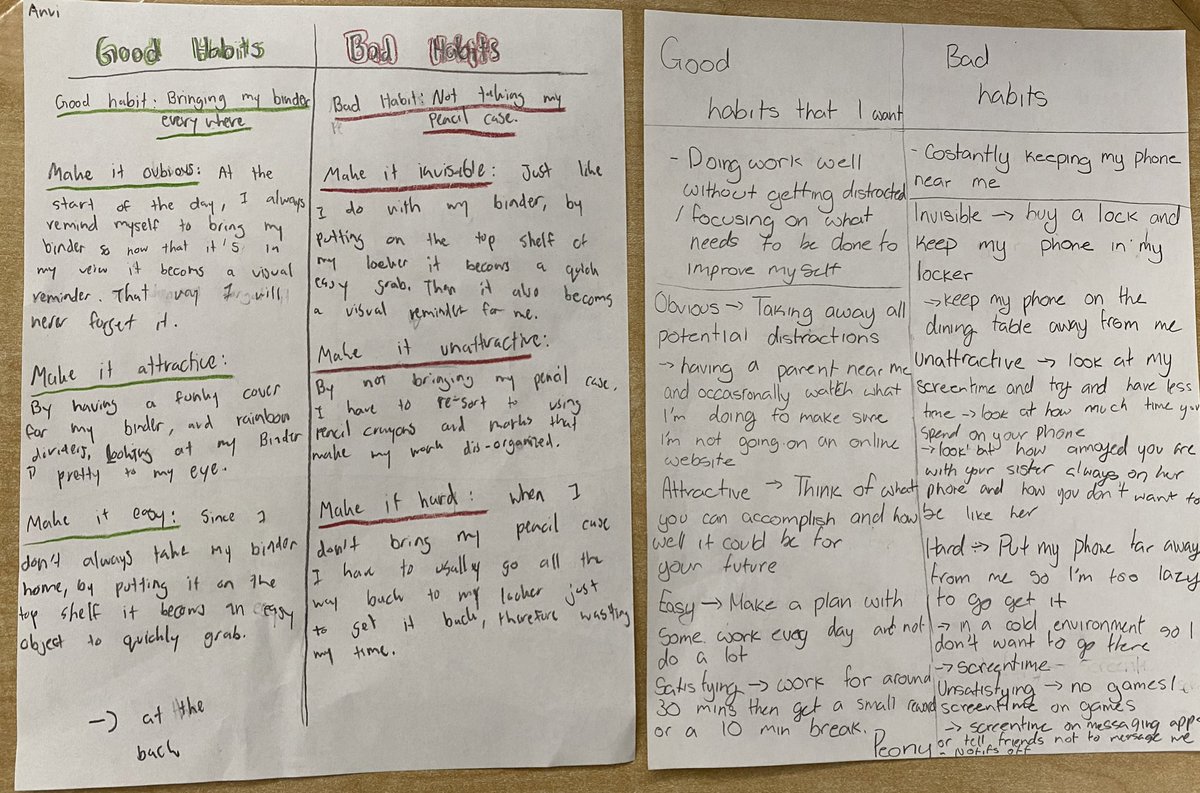 Anvi
Good Habits
Good habit: Bringing my binder
every where
Make it oubvious: At the
start of the day, I always
remind myself to bring my
binder so now that it's in
my veiw it becoms a visual
reminder. That way I will
never forget it.
Make it attractive:
By having a funky cover
for my binder, and rainbow
dividers, looking at my Binder
is pretty to my eye.
Make it easy: Since I
don't always take my binder
home, by putting it on the
top shelf it becoms an easy
object to quickly grab.
→ at the
back
Bad Habits
Bad Habit: Not taking my
Pencil case.
Make it invisable: Just like
I do with my binder, by
putting on the top shelf of
my locker it becoms a quick
easy grab. Then it also becoms
a visual reminder for me.
Make it unattractive:
By not bringing my pencil case.
I have to re-sort to using
pencil crayons and that
make my work dis-organized.
Make it hard: when I
don't bring my pencil case
I have to usally go all the
way back to my locker just
to get it back, therefore wasting
my time.
Good
habits that I want
- Doing work well
without getting distracted
/ focusing on what
needs to be done to
improve myself
Obvious → Taking away all
potential distractions
→ having a parent near me
and occasionally watch what
I'm doing to make sure
I'm not going on an online
website
Attractive → Think of what
you can accomplish and how
well it could be for
your future
Easy → Make a plan with
some work every day and not
do a lot
Satisfying → work for around
30 mins then get a small reward
or a 10 min break.
Peony
Bad
habits
- Costantly keeping my phone
near me
Invisible → buy a lock and
keep my phone in my
locker
→ keep my phone on the
dining table away from me
Unattractive → look at my
screentime and try and have less
time → look at how much time you
spend on your phone
→ look at how annoyed you are
with your sister always on her
phone and how you don't want to
be like her
Hard → Put my phone far away
from me so I'm too lazy
to go get it
→ in a cold environment so I
don't want to go there
→ screentime
Unsatisfying → no games/
screentime on games
→ screentime on messaging apps
or tell friends not to message me
- Notifs off